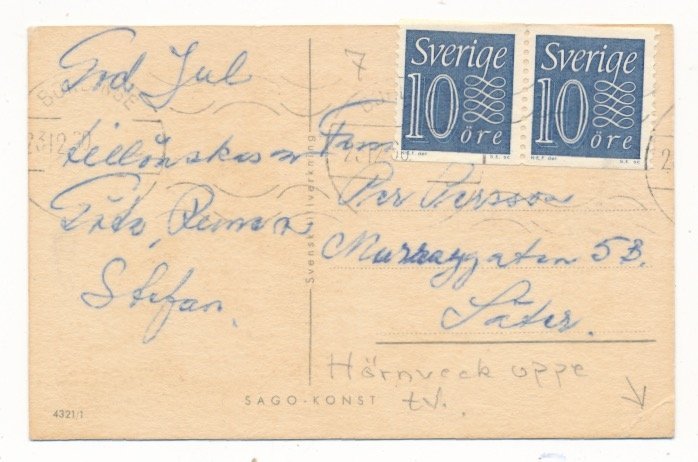 God Jul
tillönskas av
Stefan.
7
Sverige
10 öre
Sverige
10 öre
Fam
Per Persson
Murraygatan 5B.
Säter.
Hörnveck uppe
tv.
Svensk tillverkning
SAGO-KONST
4321/1